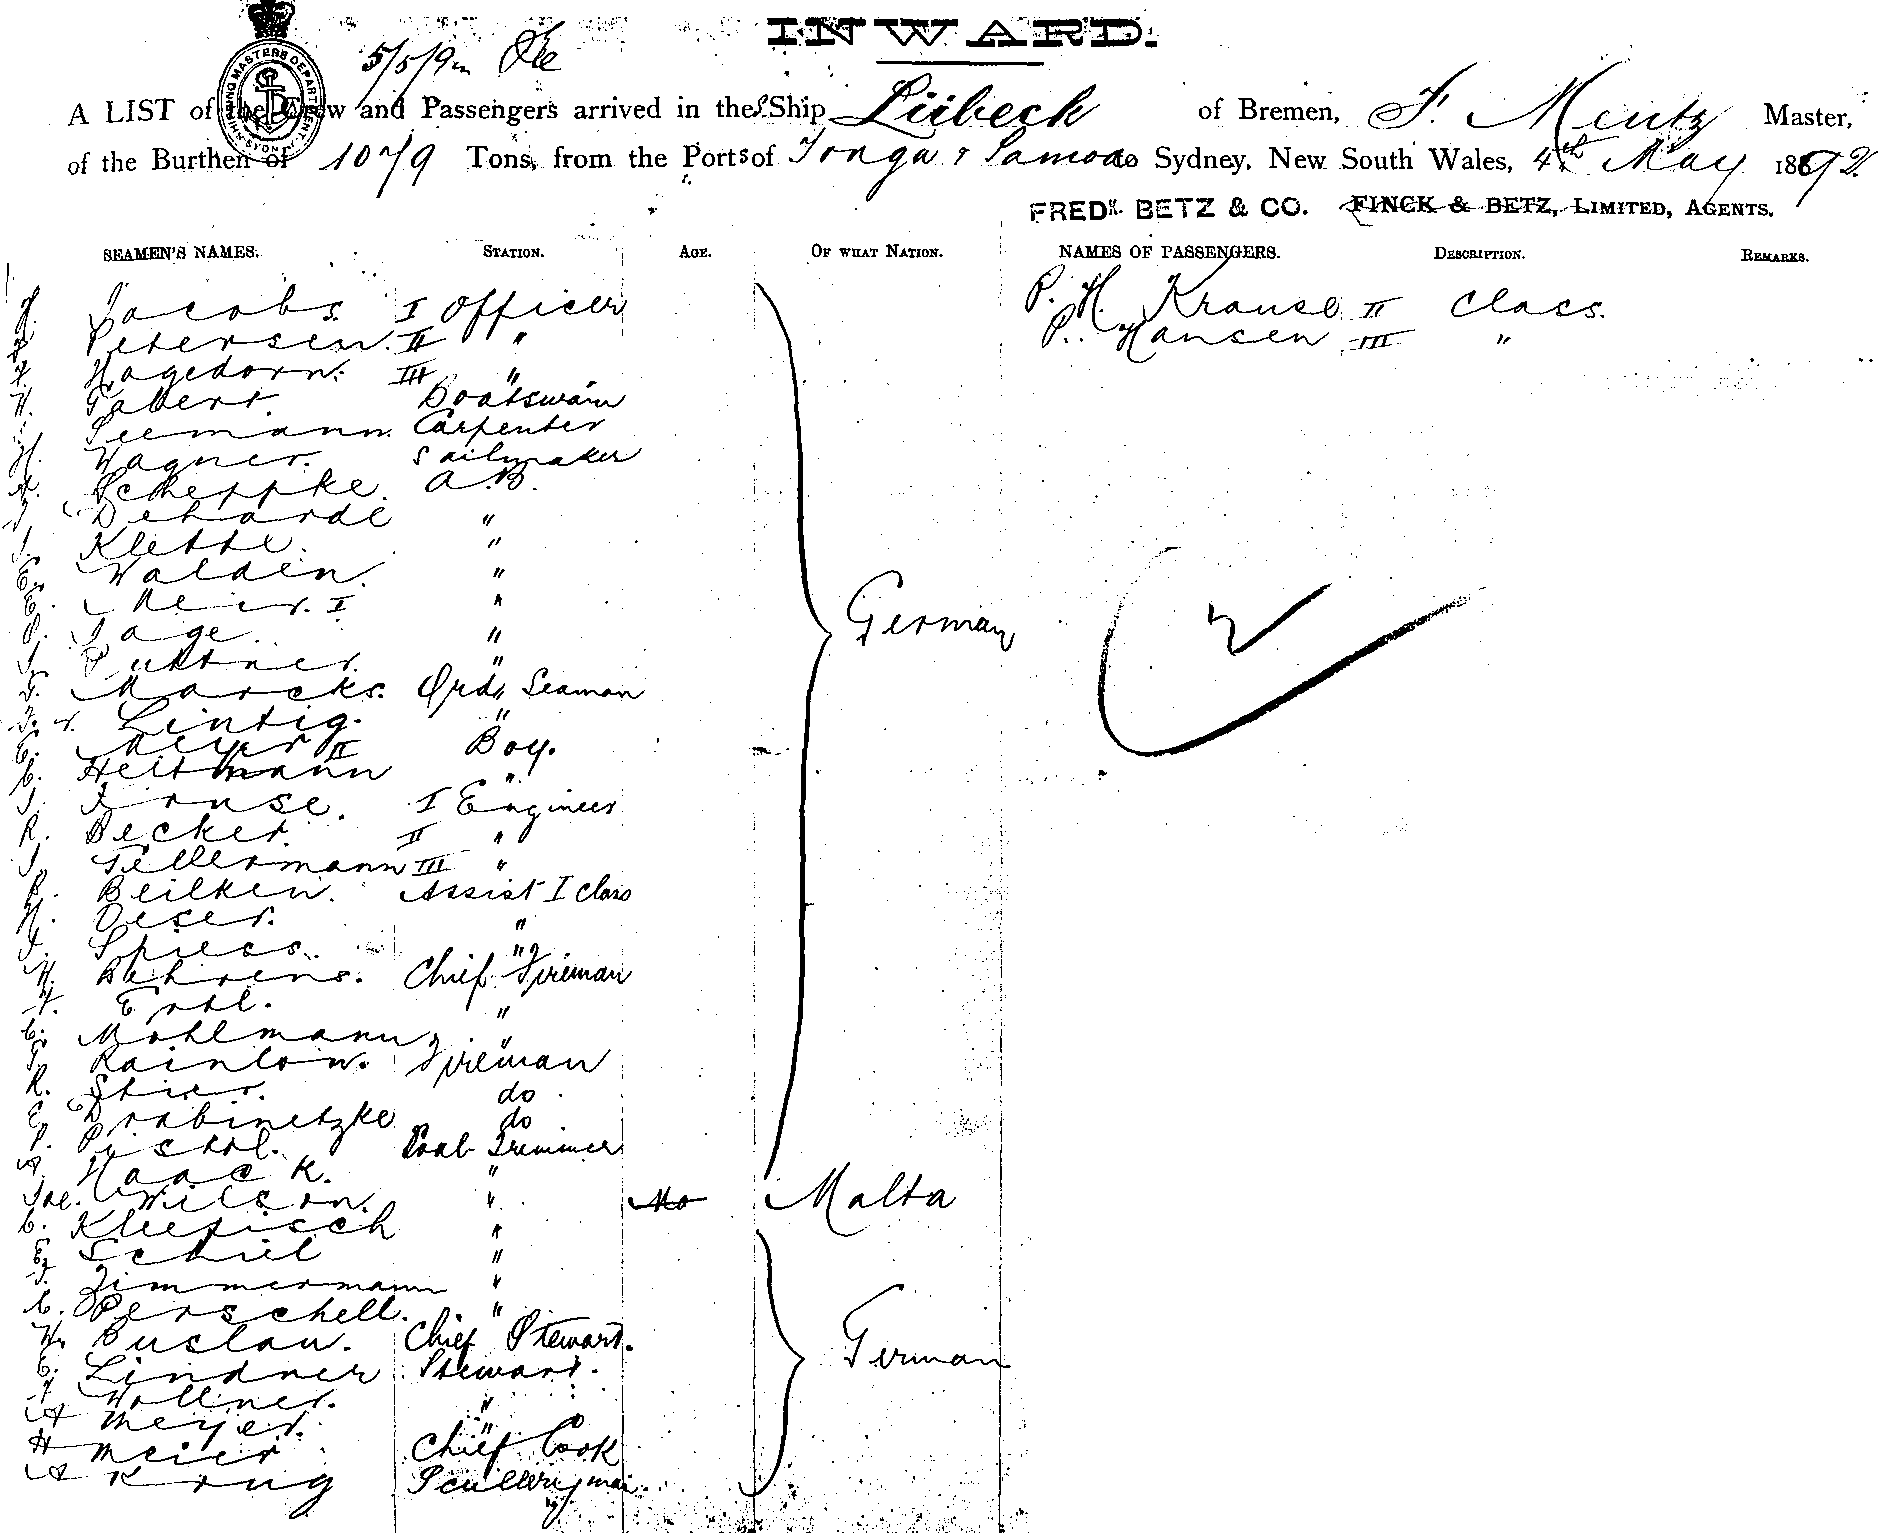 INWARD.
5/5/92
SHIPPING MASTERS DEPARTMENT. SYDNEY
A LIST of the Crew and Passengers arrived in the S Ship Lübeck of Bremen, F. Mentz Master,
of the Burthen of 1079 Tons, from the Ports of Tonga & Samoa to Sydney, New South Wales, 4th May 1892.
FREDK. BETZ & CO. FINCK & BETZ, LIMITED, AGENTS.
SEAMEN'S NAMES. STATION. AGE. OF WHAT NATION. NAMES OF PASSENGERS. DESCRIPTION. REMARKS.
Jacobs. I Officer P. H. Krause II Class.
Petersen. II " P. Hansen III "
Hagedorn. III "
H. Tabert. Boatswain
Seemann. Carpenter
H. Wagner. Sailmaker
A. Scheppke. A.B.
Deharde "
Klette. "
E. Walden. "
E. Meier. I "
O. Tage. "
Puttner. "
Marcks. Ord. Seaman
v. Lintig. "
C. Meyer II Boy.
C. Heitmann "
J. Kruse. I Engineer
R. Becker. II "
J. Tellermann III "
B. Beilken. Assist I Class
H. Oeser. "
Spiess. "
H. Behrens. Chief Fireman
F. Ertl. "
C. Mohlmann "
Rainlow. Fireman
R. Stier. do
E. Drabinetzke do
P. Pistol. Coal Trimmer
A. Haack. "
Joe. Wilson. " Mo Malta
C. Kleefisch "
E. Schiel "
J. Zimmermann "
C. Perschell. "
H. Buslau. Chief Stewart.
C. Lindner Steward.
Wollner. "
A Meyer. "
H Meier Chief Cook
A Krug Scullery man
German
German